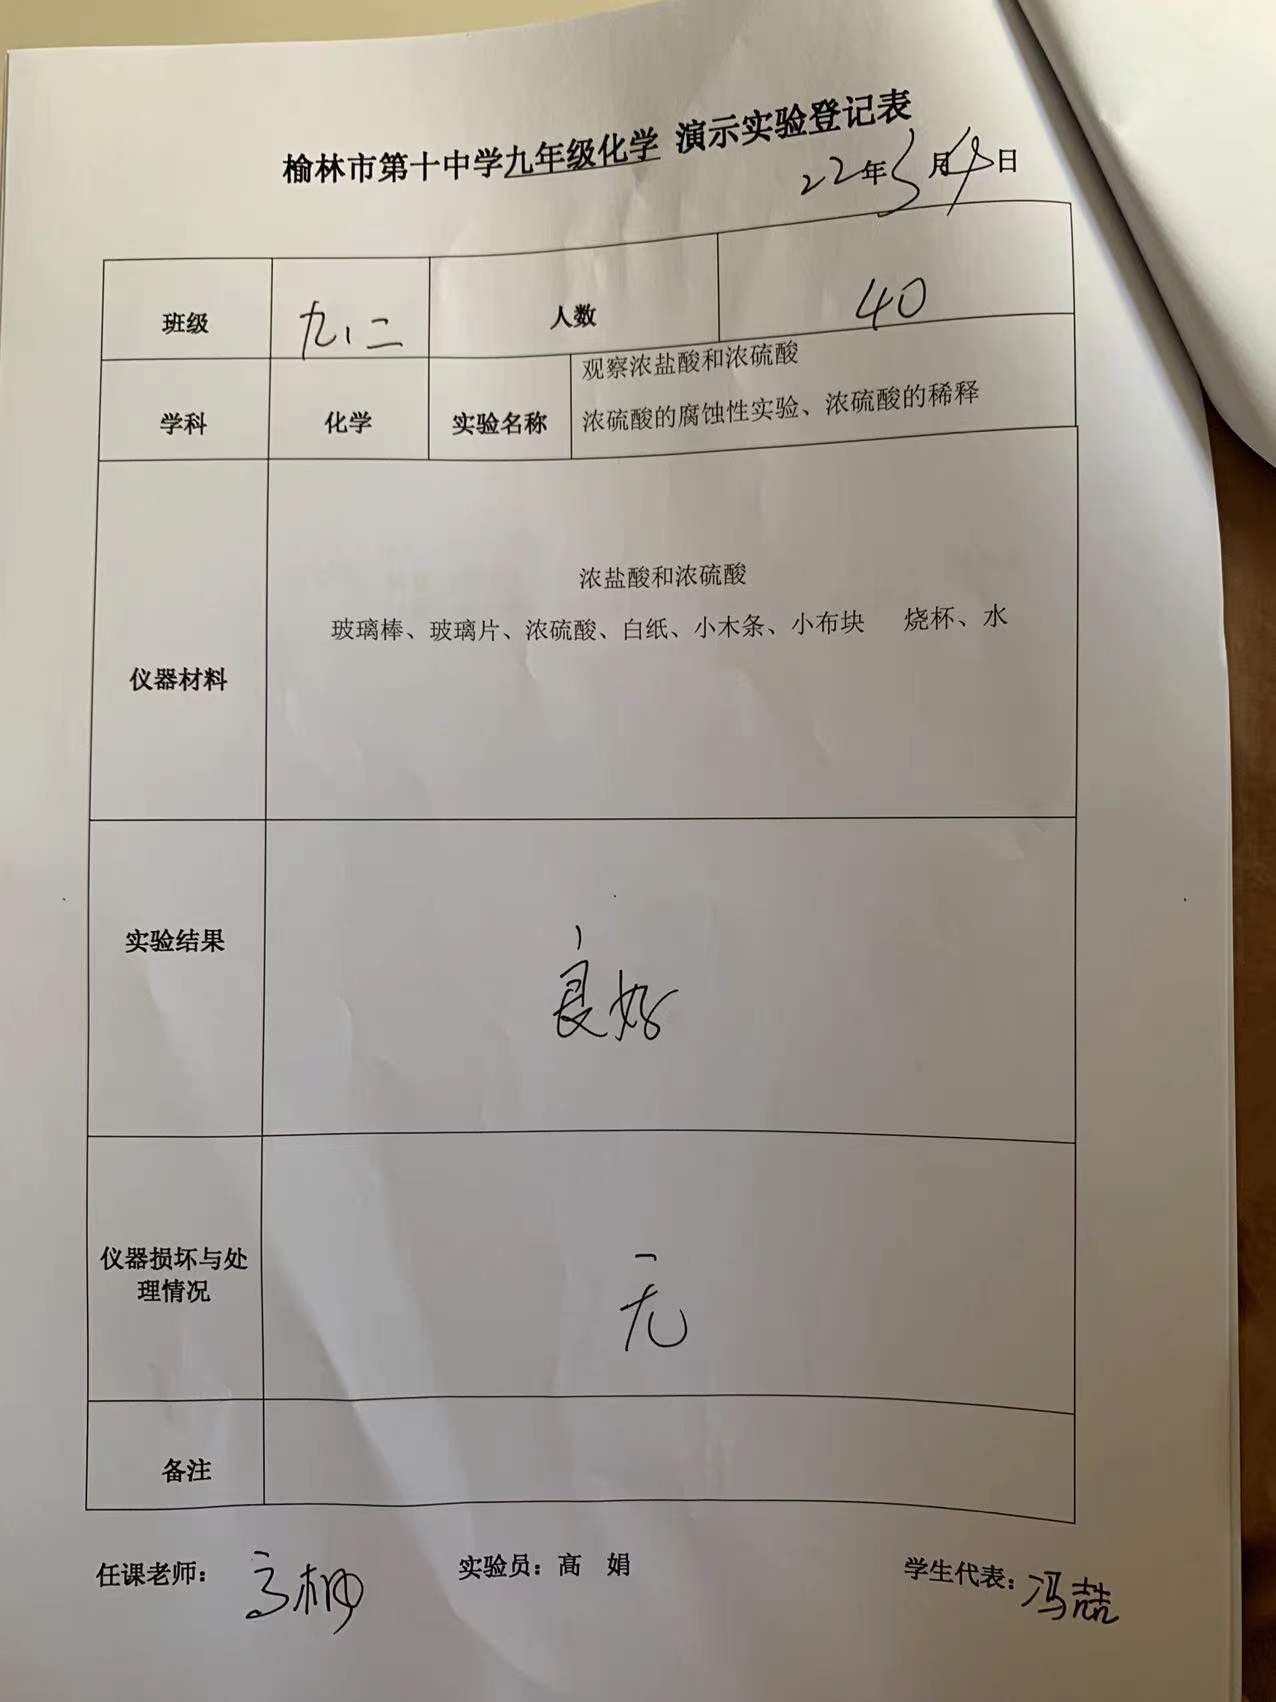 榆林市第十中学九年级化学 演示实验登记表
22年3月9日
班级 九、二 人数 40
学科 化学 实验名称 观察浓盐酸和浓硫酸
浓硫酸的腐蚀性实验、浓硫酸的稀释
仪器材料
浓盐酸和浓硫酸
玻璃棒、玻璃片、浓硫酸、白纸、小木条、小布块 烧杯、水
实验结果
良好
仪器损坏与处
理情况
无
备注
任课老师： 高柳 实验员：高 娟 学生代表：冯喆